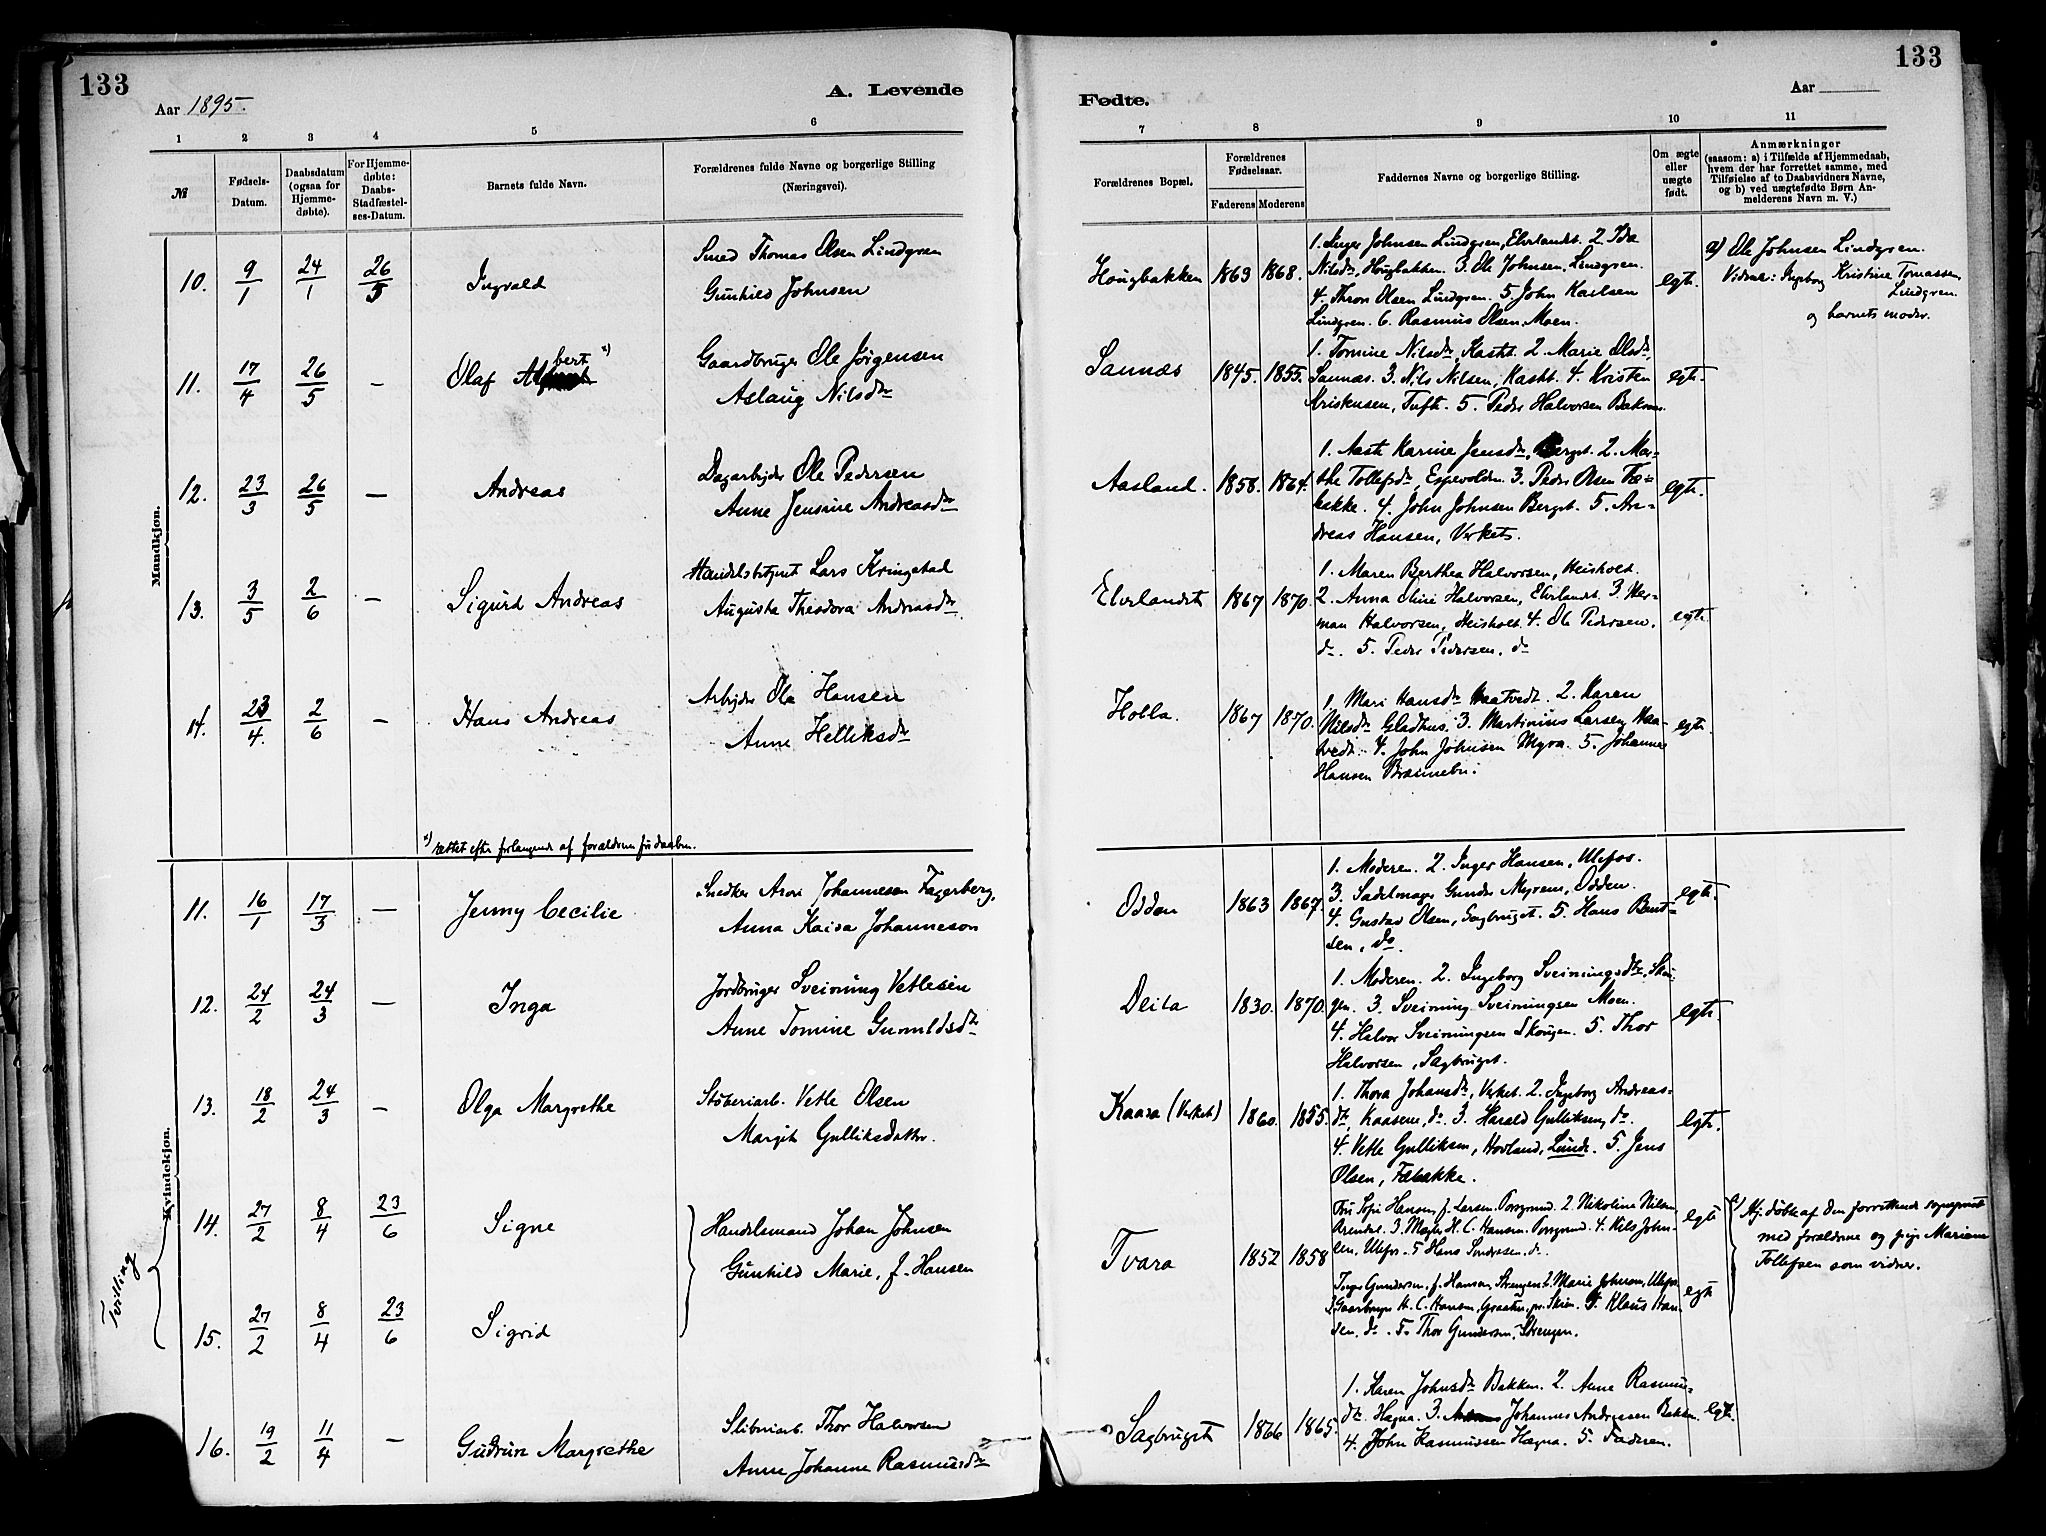 133
133
Aar 1895.
A. Levende
Fødte.
Aar
1 2 3 4 5 6 7 8 9 10 11
№
Fødsels-Datum.
Daabsdatum (ogsaa for Hjemme-døbte).
For Hjemme-døbte: Daabs-Stadfæstel-ses-Datum.
Barnets fulde Navn.
Forældrenes fulde Navne og borgerlige Stilling (Næringsvei).
Forældrenes Bopæl.
Forældrenes Fødselsaar.
Faderens Moderens
Faddernes Navne og borgerlige Stilling.
Om ægte eller uægte født.
Anmærkninger (saasom: a) i Tilfælde af Hjemmedaab, hvem der har forrettet samme, med Tilføielse af to Daabsvidners Navne, og b) ved uægtefødte Børn An-melderens Navn m. V.)
Mandkjøn.
10. 9/1 24/1 26/5 Ingvald
Smed Thomas Olsen Lindgren
Gunhild Johnsen
Hougbakken 1863 1868.
1. Inger Johnsen Lindgren, Elverlandst. 2 Ida
Nilsdr, Hougbakken. 3. Ole Johnsen, Lindgren.
4. Thron Olsen Lindgren. 5 John Karlsen
Lindgren. 6. Rasmus Olsen Moen.
egte.
a) Ole Johnsen Lindgren.
Vidner: Ingeborg Kristine Tomassen
Lindgren.
og barnets moder.
11. 17/4 26/5 – Olaf Albert x)
Gaardbruger Ole Jørgensen
Aslaug Nilsdr
Sannæs 1845. 1855.
1. Tomine Nilsdr, Kasht. 2. Marie Olsdr,
Sannæs. 3. Nils Nilsen, Kasht. 4. Kristen
Kristensen, Tufte. 5. Peder Halvorsen
egte.
12. 23/3 26/5 – Andreas
Dagarbejder Ole Pedersen
Anne Jensine Andreasdr
Aasland. 1858. 1864.
1. Aaste Karine Jensdr, Berget. 2. Mar-
the Tollefsdr Espevolden. 3. Peder Olsen Fæ-
bakke. 4. John Johnsen Berget. 5. An-
dreas Hansen, Verket.
egte.
13. 3/5 2/6 – Sigurd Andreas
Handelsbetjent Lars Kringstad
Augusta Theodora Andreasdr.
Elverlandst 1867 1870.
1. Maren Berthea Halvorsen, Heisholt.
2. Anna Oline Halvorsen, Elverlandst. 3 Her-
man Halvorsen, Heisholt. 4. Ole Pedersen,
do. 5. Peder Pedersen. do
egte.
14. 23/4. 2/6 – Hans Andreas
Arbejder Ole Hansen
Anne Helliksdr
Holla. 1867 1870.
1. Mari Hansdr Haatvedt. 2. Karen
Nilsdr Gladhus. 3. Martinius Larsen Haa-
tvedt. 4. John Johnsen Myra. 5. Johannes
Hansen Brænnebu.
egte.
x) rettet efter forlangende af forældrene før daaben.
Kvindekjøn.
11. 16/1 17/3 – Jenny Cecilie
Snedker Arvi Johannesen Fagerberg,
Anna Kaisa Johanneson
Odden 1863 1867
1. Moderen. 2. Inger Hansen, Ulefos.
3. Sadelmager Gunder Myren, Odden.
4. Gustav Olsen, Sagbruget. 5. Hans Bent-
sen, do.
egte.
12. 24/2 24/3 – Inga
Jordbruger Sveinung Vetlesen
Anne Tomine Gunuldsdr
Deila 1830. 1870.
1. Moderen. 2. Ingeborg Sveinungsdtr, Skou-
gen. 3. Sveinung Sveinungsen Moen.
4. Halvor Sveinungsen Skougen. 5. Thor
Halvorsen, Sagbruget.
egte.
13. 18/2 24/3 – Olga Margrethe
Støberiarb. Vetle Olsen
Margit Gulliksdatter.
Kaasa (Verket) 1860. 1855.
1. Thora Johansdr, Verket. 2. Ingeborg Andreas-
dtr, Kaasene, do. 3. Harald Gulliksen, do.
4. Vetle Gulliksen, Hovland, Lunde. 5. Jens
Olsen, Fæbakke.
egte.
Tvilling
14. 27/2 8/4 23/6 Signe
Handelsmand Johan Johnsen
Gunhild Marie, f. Hansen
Tvara 1852 1858
Fru Sofie Hansen, f. Larsen Porsgrund. 2. Nikoline Nilsen,
Arendal. 3. Mægler H. C. Hansen Porsgrund. 4. Nils John-
sen, Ulefos. 5 Hans Sondresen, do.
egte
a) Hj. døbt af den forrettende sogneprest
med forældrene og pige Mariane
Tollefsen som vidner.
15. 27/2 8/4 23/6 Sigrid
Inger Gundersen, f. Hansen, Strengen. 2. Marie Johnsen, Ulefos.
3. Gaardbruger H. C. Hansen, Graaten, pr. Skien. 4. Klaus Han-
sen, do. 5. Thor Gundersen, Strengen.
egte
16. 19/2 11/4 – Gudrun Margrethe
Sliberiarb. Thor Halvorsen
Anne Johanne Rasmusdr
Sagbruget 1866 1865.
1. Karen Johnsdr Bakken. 2. Anne Rasmus-
dtr. Hagna. 3. Johannes Andreasen Bakken.
4. John Rasmussen Hægna. 5. Faderen.
egte.